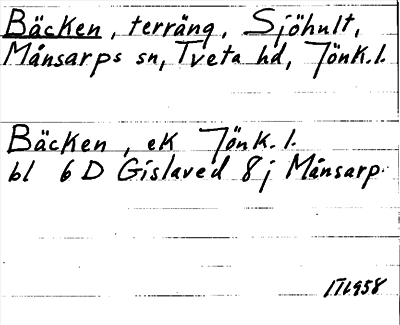 Bäcken, terräng, Sjöhult,
Månsarps sn, Tveta hd, Jönk. l.
Bäcken, ek Jönk. l.
bl 6 D Gislaved 8 j Månsarp.
1958